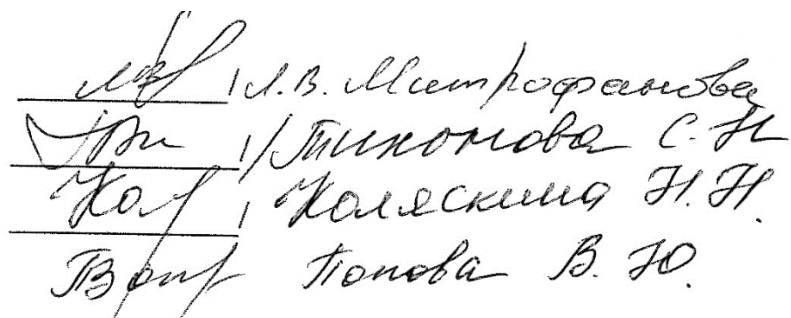 / Л.В. Митрофанова
/ Тихонова С.Н
/ Коляскина Н.Н.
Попова В.Ю.